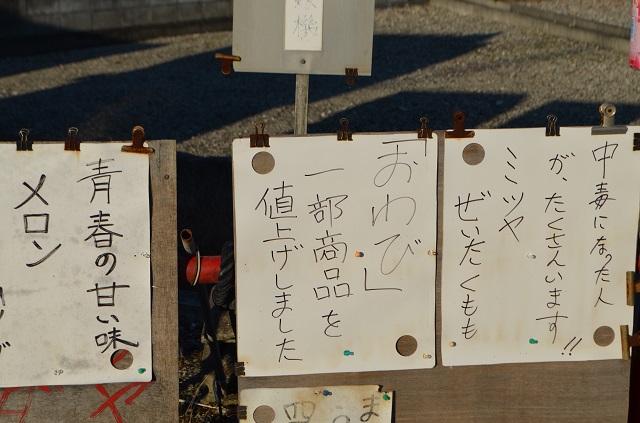 中毒になった人
が、たくさんいます!!
ミツヤ
ぜいたくもも
「おわび」
一部商品を
値上げしました
青春の甘い味
メロン